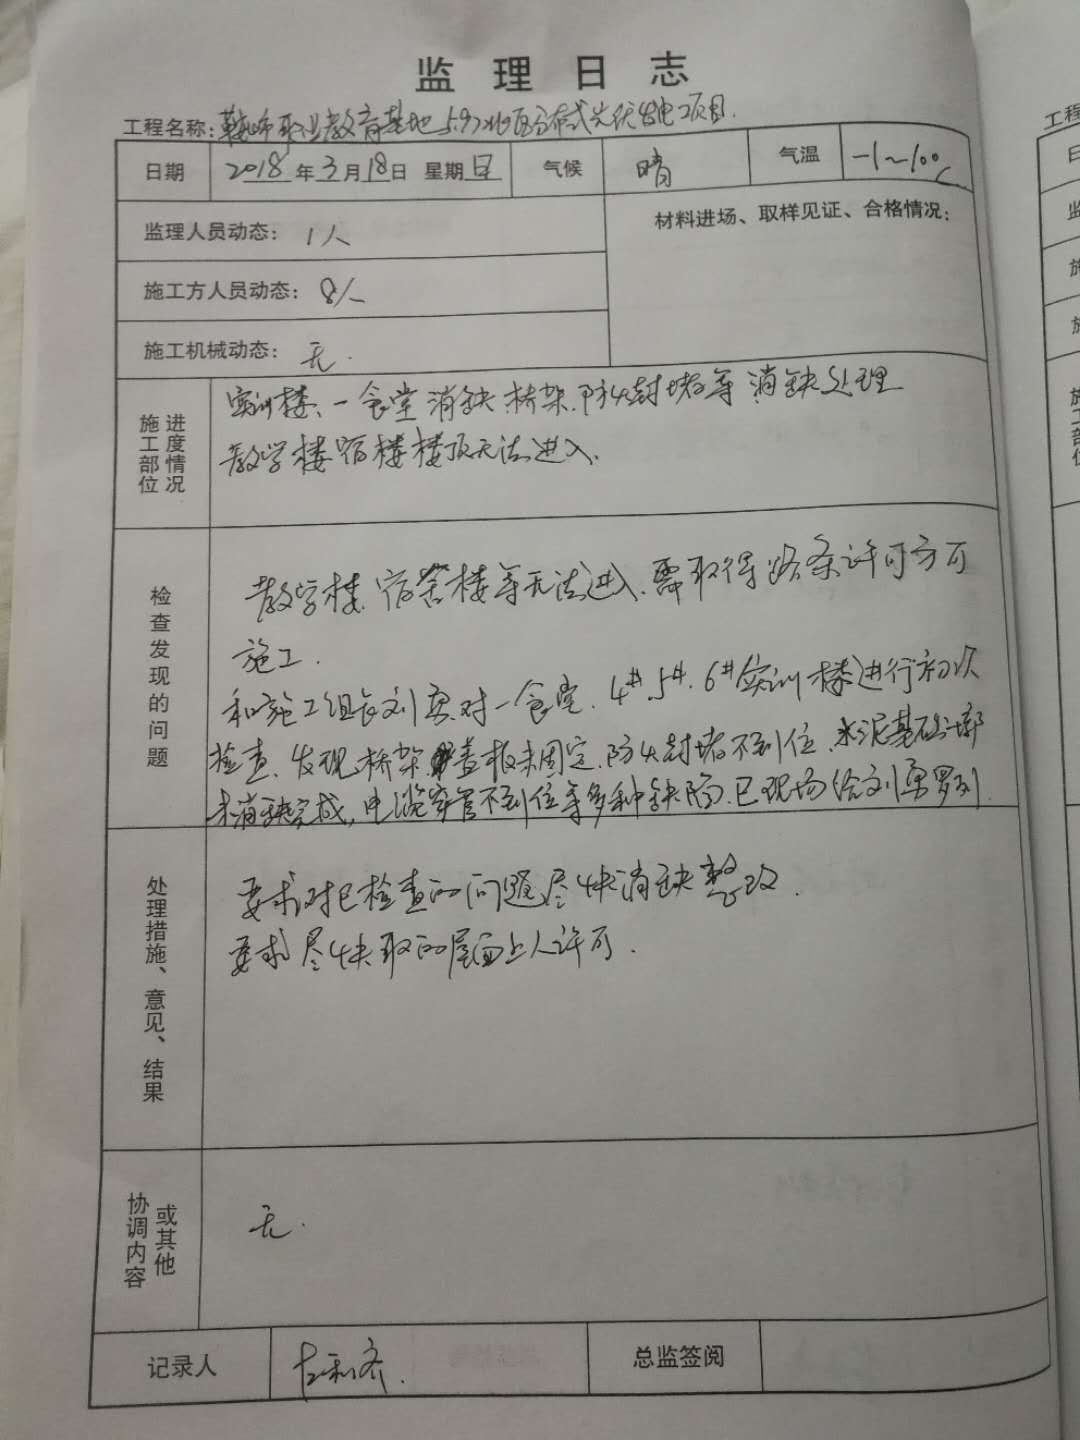 监理日志
工程名称:鞍山市职业教育基地5.9兆瓦分布式光伏发电项目.
日期 2018年3月18日 星期日 气候 晴 气温 -1~10℃
监理人员动态: 1人
材料进场、取样见证、合格情况:
施工方人员动态: 8人
施工机械动态: 无.
施工部位 进度情况
实训楼、一食堂消缺.桥架.防火封堵等消缺处理
教学楼宿楼楼顶无法进入.
检查发现的问题
教学楼.宿舍楼等无法进入.需取得路条许可方可
施工.
和施工组长刘勇对一食堂.4#.5#.6#实训楼进行初次
检查.发现桥架盖板未固定.防火封堵不到位.水泥基础
未消缺完成,电缆穿管不到位等多种缺陷.已现场给刘勇罗列.
处理措施、意见、结果
要求对已检查的问题尽快消缺整改.
要求尽快取的屋面上人许可.
协调内容 或其他
无.
记录人
总监签阅
工程